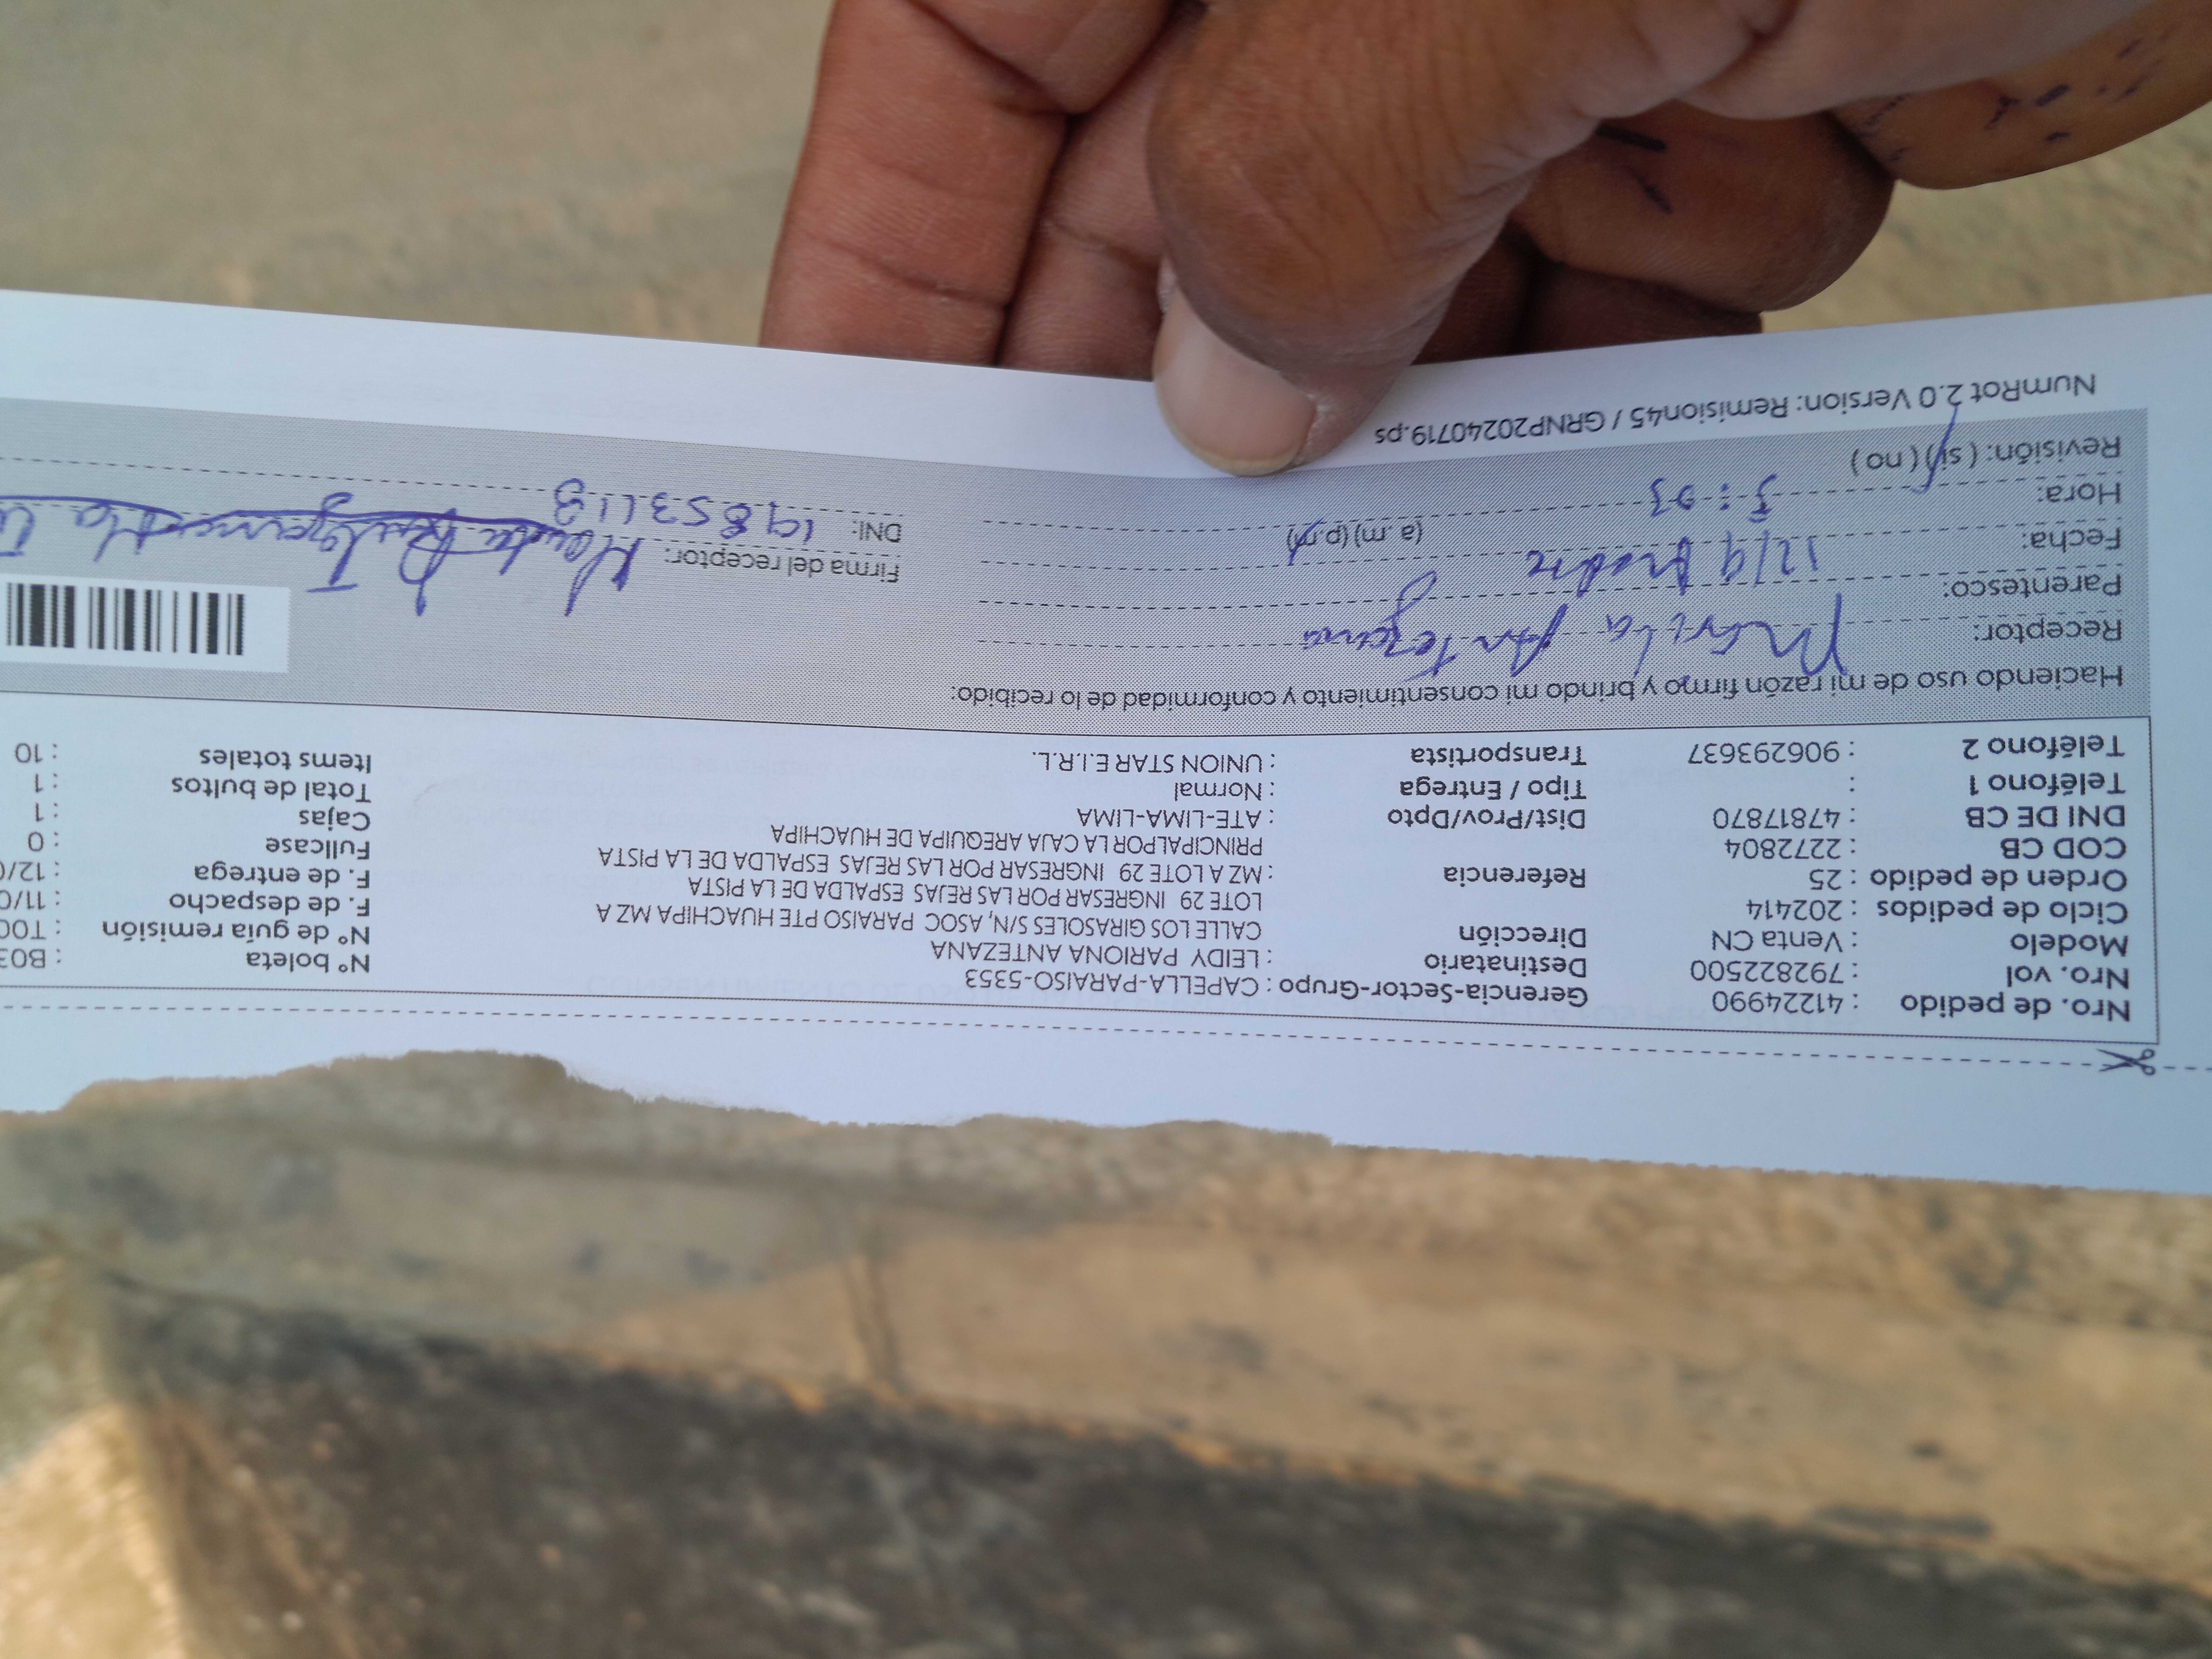 Nro. de pedido : 41224990 Gerencia-Sector-Grupo : CAPELLA-PARAISO-5353
Nro. vol : 792822500 Destinatario : LEIDY PARIONA ANTEZANA Nº boleta : B03
Modelo : Venta CN Dirección CALLE LOS GIRASOLES S/N, ASOC PARAISO PTE HUACHIPA MZ A Nº de guía remisión : T00
Ciclo de pedidos : 202414 LOTE 29 INGRESAR POR LAS REJAS ESPALDA DE LA PISTA F. de despacho : 11/0
Orden de pedido : 25 Referencia : MZ A LOTE 29 INGRESAR POR LAS REJAS ESPALDA DE LA PISTA F. de entrega : 12/0
COD CB : 2272804 PRINCIPALPOR LA CAJA AREQUIPA DE HUACHIPA Fullcase : 0
DNI DE CB : 47817870 Dist/Prov/Dpto : ATE-LIMA-LIMA Cajas : 1
Teléfono 1 : Tipo / Entrega : Normal Total de bultos : 1
Teléfono 2 : 906293637 Transportista : UNION STAR E.I.R.L. Items totales : 10
Haciendo uso de mi razón firmo y brindo mi consentimiento y conformidad de lo recibido:
Receptor: Antezana
Parentesco: Madre
Fecha: 12/9 Firma del receptor:
Hora: (a.m) (p.m) DNI:
Revisión: ( si ) ( no )
NumRot 2.0 Version: Remision45 / GRNP20240719.ps